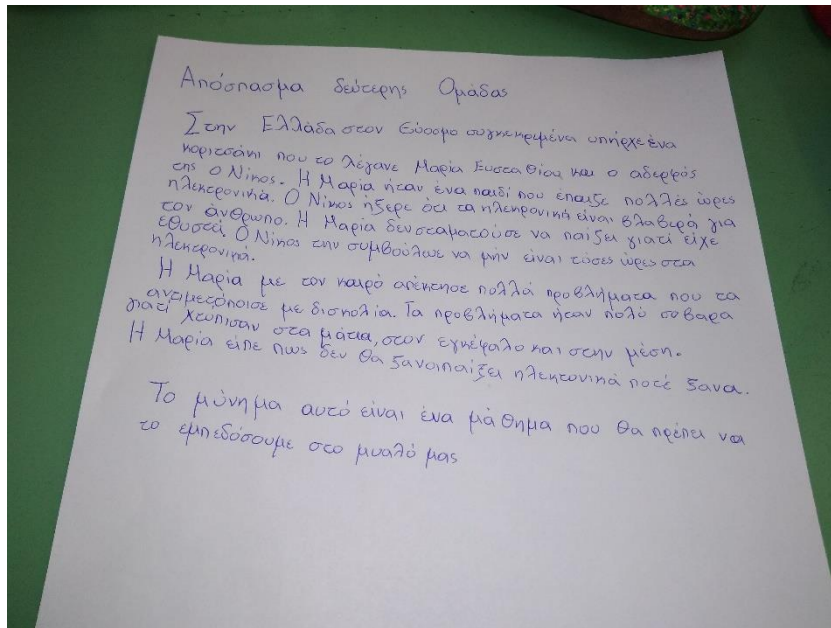 Απόσπασμα δεύτερης Ομάδας
Στην Ελλάδα στον Εύοσμο συγκεκριμένα υπήρχε ένα
κοριτσάκι που το λέγανε Μαρία Ευσταθίου και ο αδερφός
της ο Νίκος. Η Μαρία ήταν ένα παιδί που έπαιζε πολλές ώρες
ηλεκτρονικά. Ο Νίκος ήξερε ότι τα ηλεκρονικά είναι βλαβερά για
τον άνθρωπο. Η Μαρία δεν σταματούσε να παίζει γιατί είχε
εθιστεί. Ο Νίκος την συμβούλωε να μην είναι τόσες ώρες στα
ηλεκτρονικά.
Η Μαρία με τον καιρό απέκτησε πολλά προβλήματα που τα
αντιμετόποισε με δισκολία. Τα προβλήματα ήταν πολύ σοβαρά
γιατί χτύπισαν στα μάτια, στον εγκέφαλο και στην μέση.
Η Μαρία είπε πως δεν θα ξαναπαίξει ηλεκτονικά ποτέ ξανα.
Το μύνημα αυτό είναι ένα μάθημα που θα πρέπει να
το εμπεδόσουμε στο μυαλό μας